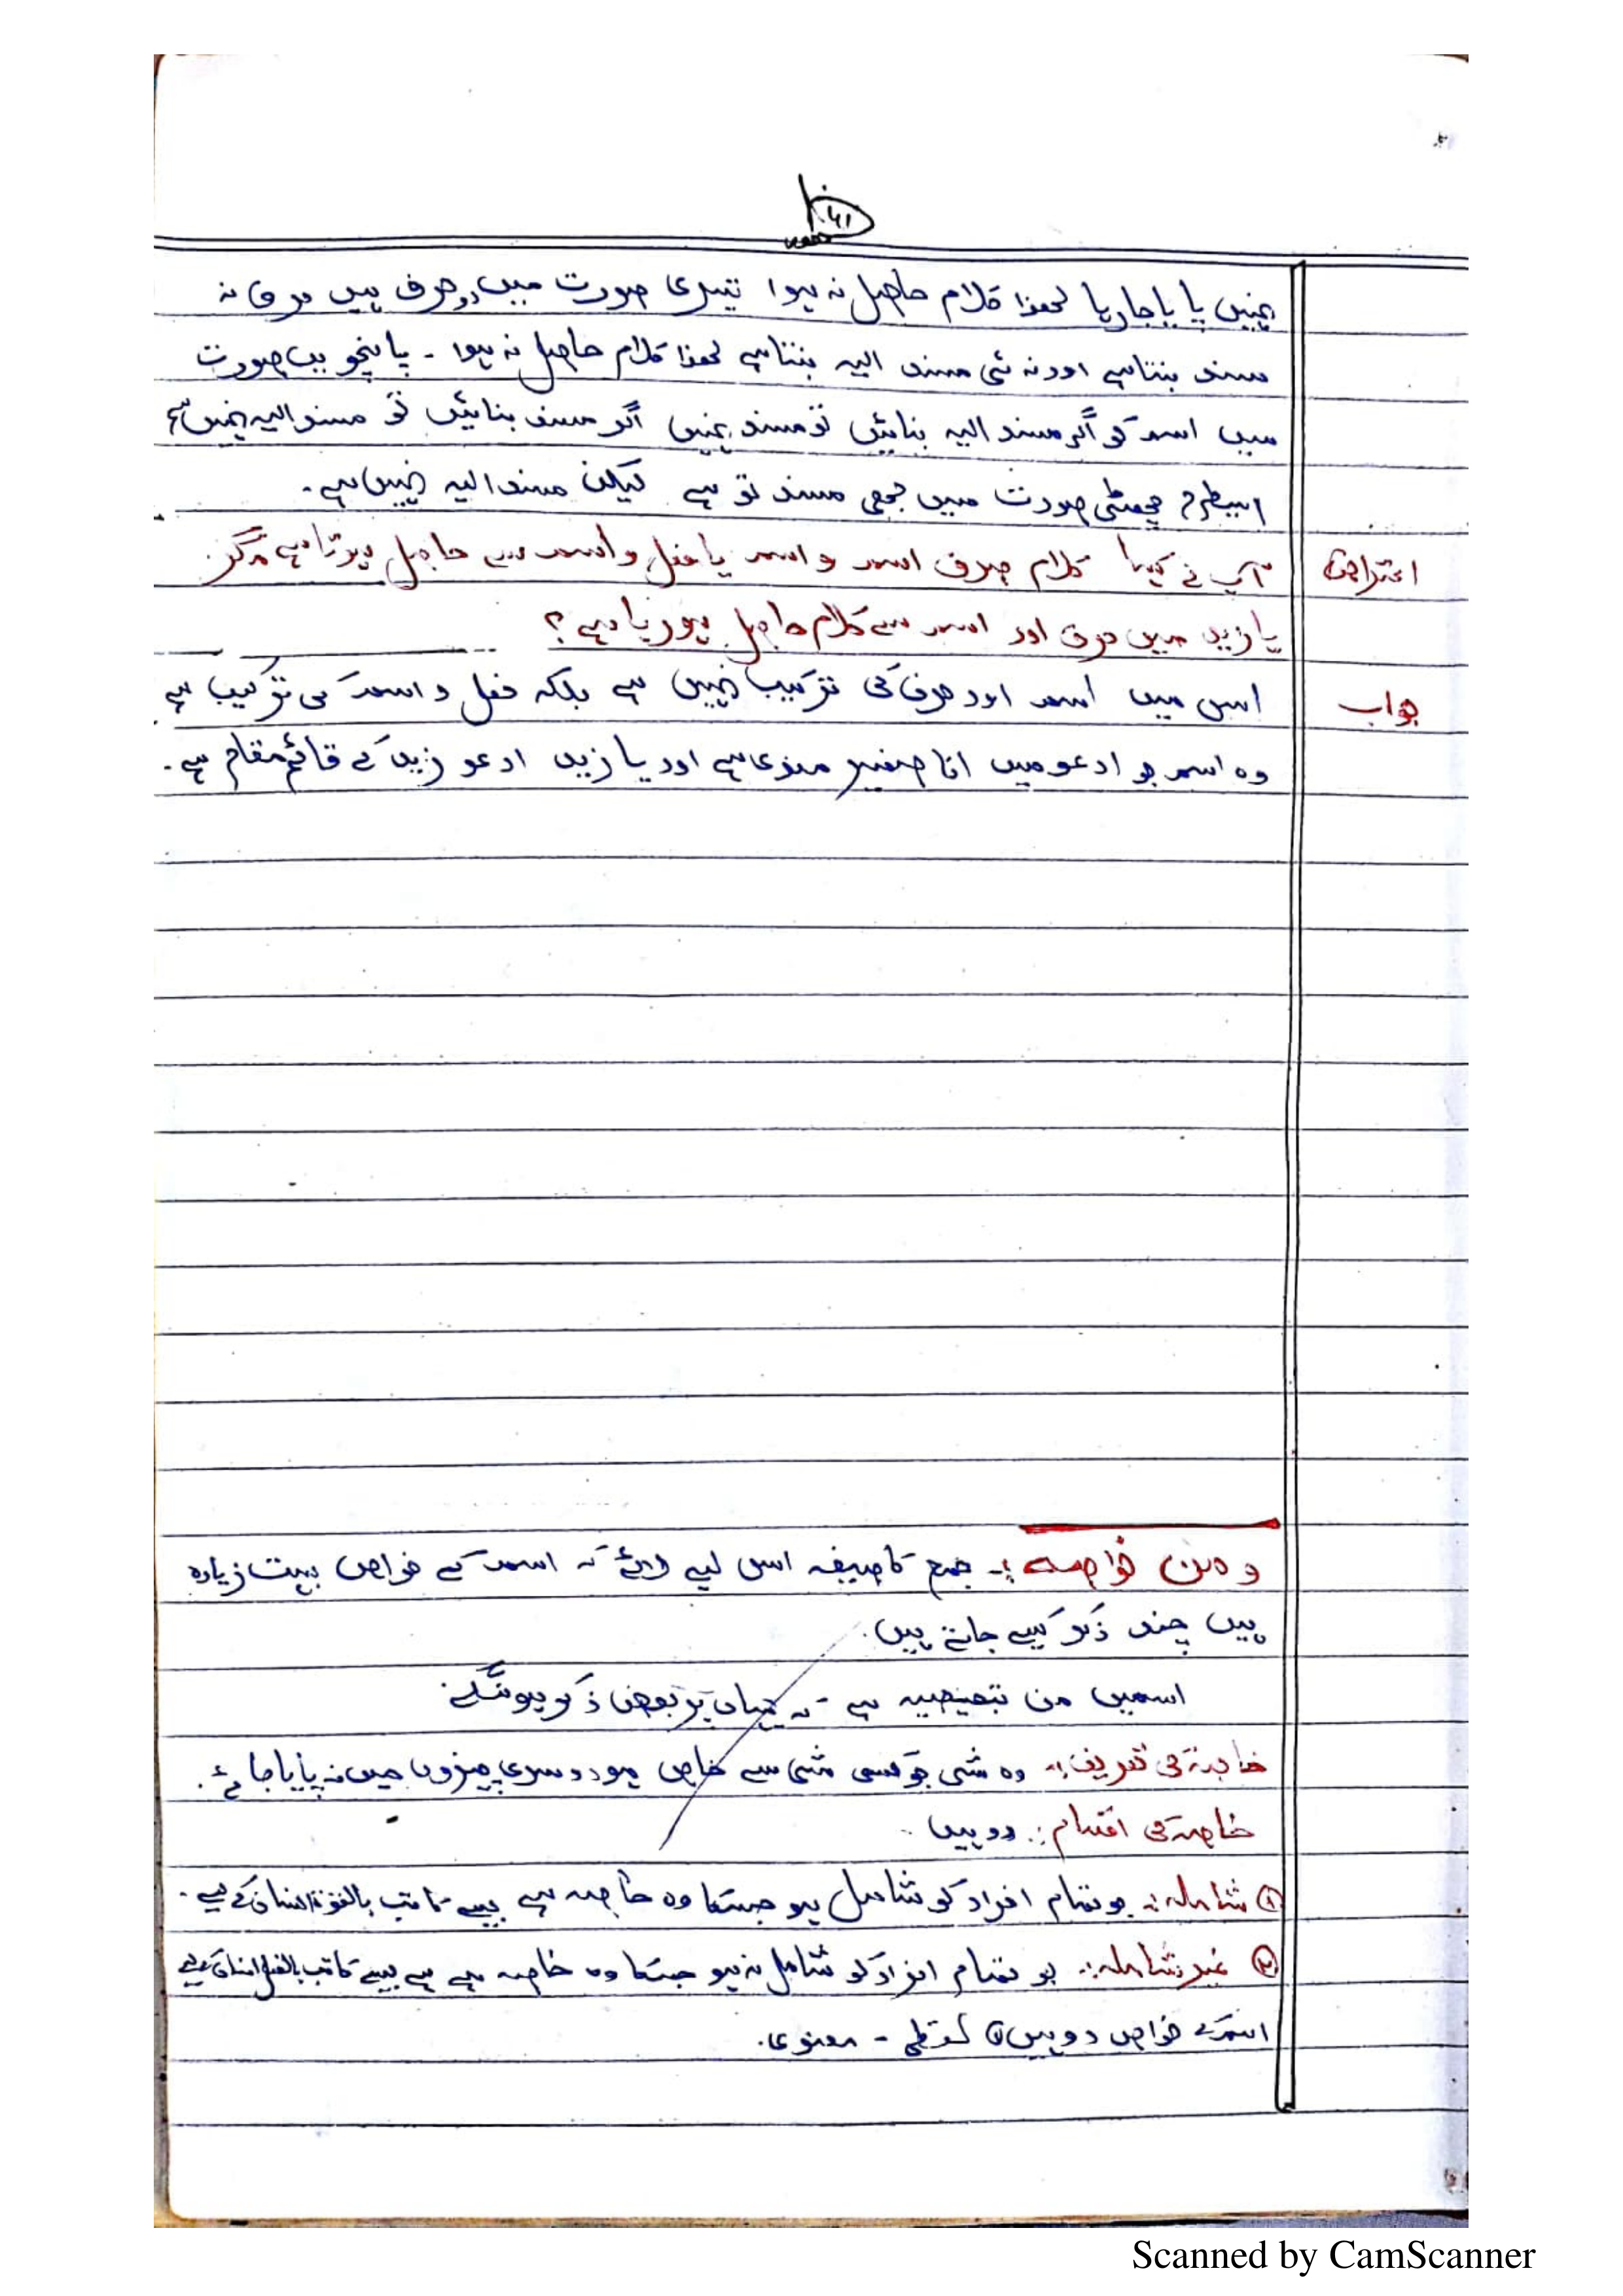 نہیں پایا جا رہا لھذا کلام حاصل نہ ہوا تیسری صورت میں دو حرف ہیں حرف نہ
مسند بنتا ہے اور نہ ہی مسند الیہ بنتا ہے لھذا کلام حاصل نہ ہوا ۔ پانچویں صورت
میں اسم کو اگر مسند الیہ بنائیں تو مسند نہیں اگر مسند بنائیں تو مسند الیہ نہیں ہے
اسیطرح چھٹی صورت میں بھی مسند تو ہے لیکن مسند الیہ نہیں ہے۔
اعتراض آپ نے کہا کلام صرف اسم و اسم یا فعل و اسم سے حاصل ہوتا ہے مگر
یا زید میں حرف اور اسم سے کلام حاصل ہو رہا ہے؟
جواب اس میں اسم اور حرف کی ترکیب نہیں ہے بلکہ فعل و اسم کی ترکیب ہے
وہ اسم جو ادعو میں انا ضمیر منوی ہے اور یا زید ادعو زید کے قائم مقام ہے۔
و من خواصہ :۔ جمع کا صیغہ اس لیے لائے کہ اسم کے خواص بہت زیادہ
ہیں چند ذکر کیے جاتے ہیں۔
اسمیں من تبعیضیہ ہے کہ یہاں پر بعض ذکر ہونگے۔
خاصہ کی تعریف :۔ وہ شی جو کسی شی سے خاص ہو دوسری چیزوں میں نہ پایا جائے۔
خاصہ کی اقسام :۔ دو ہیں ۔
① شاملہ :۔ جو تمام افراد کو شامل ہو جسکا وہ خاصہ ہے جیسے کاتب بالقوۃ انسان کے لیے۔
② غیر شاملہ :۔ جو تمام افراد کو شامل نہ ہو جسکا وہ خاصہ ہے ہے جیسے کاتب بالفعل انسان کے لیے
اسم کے خواص دو ہیں ① لفظی ۔ معنوی۔
Scanned by CamScanner